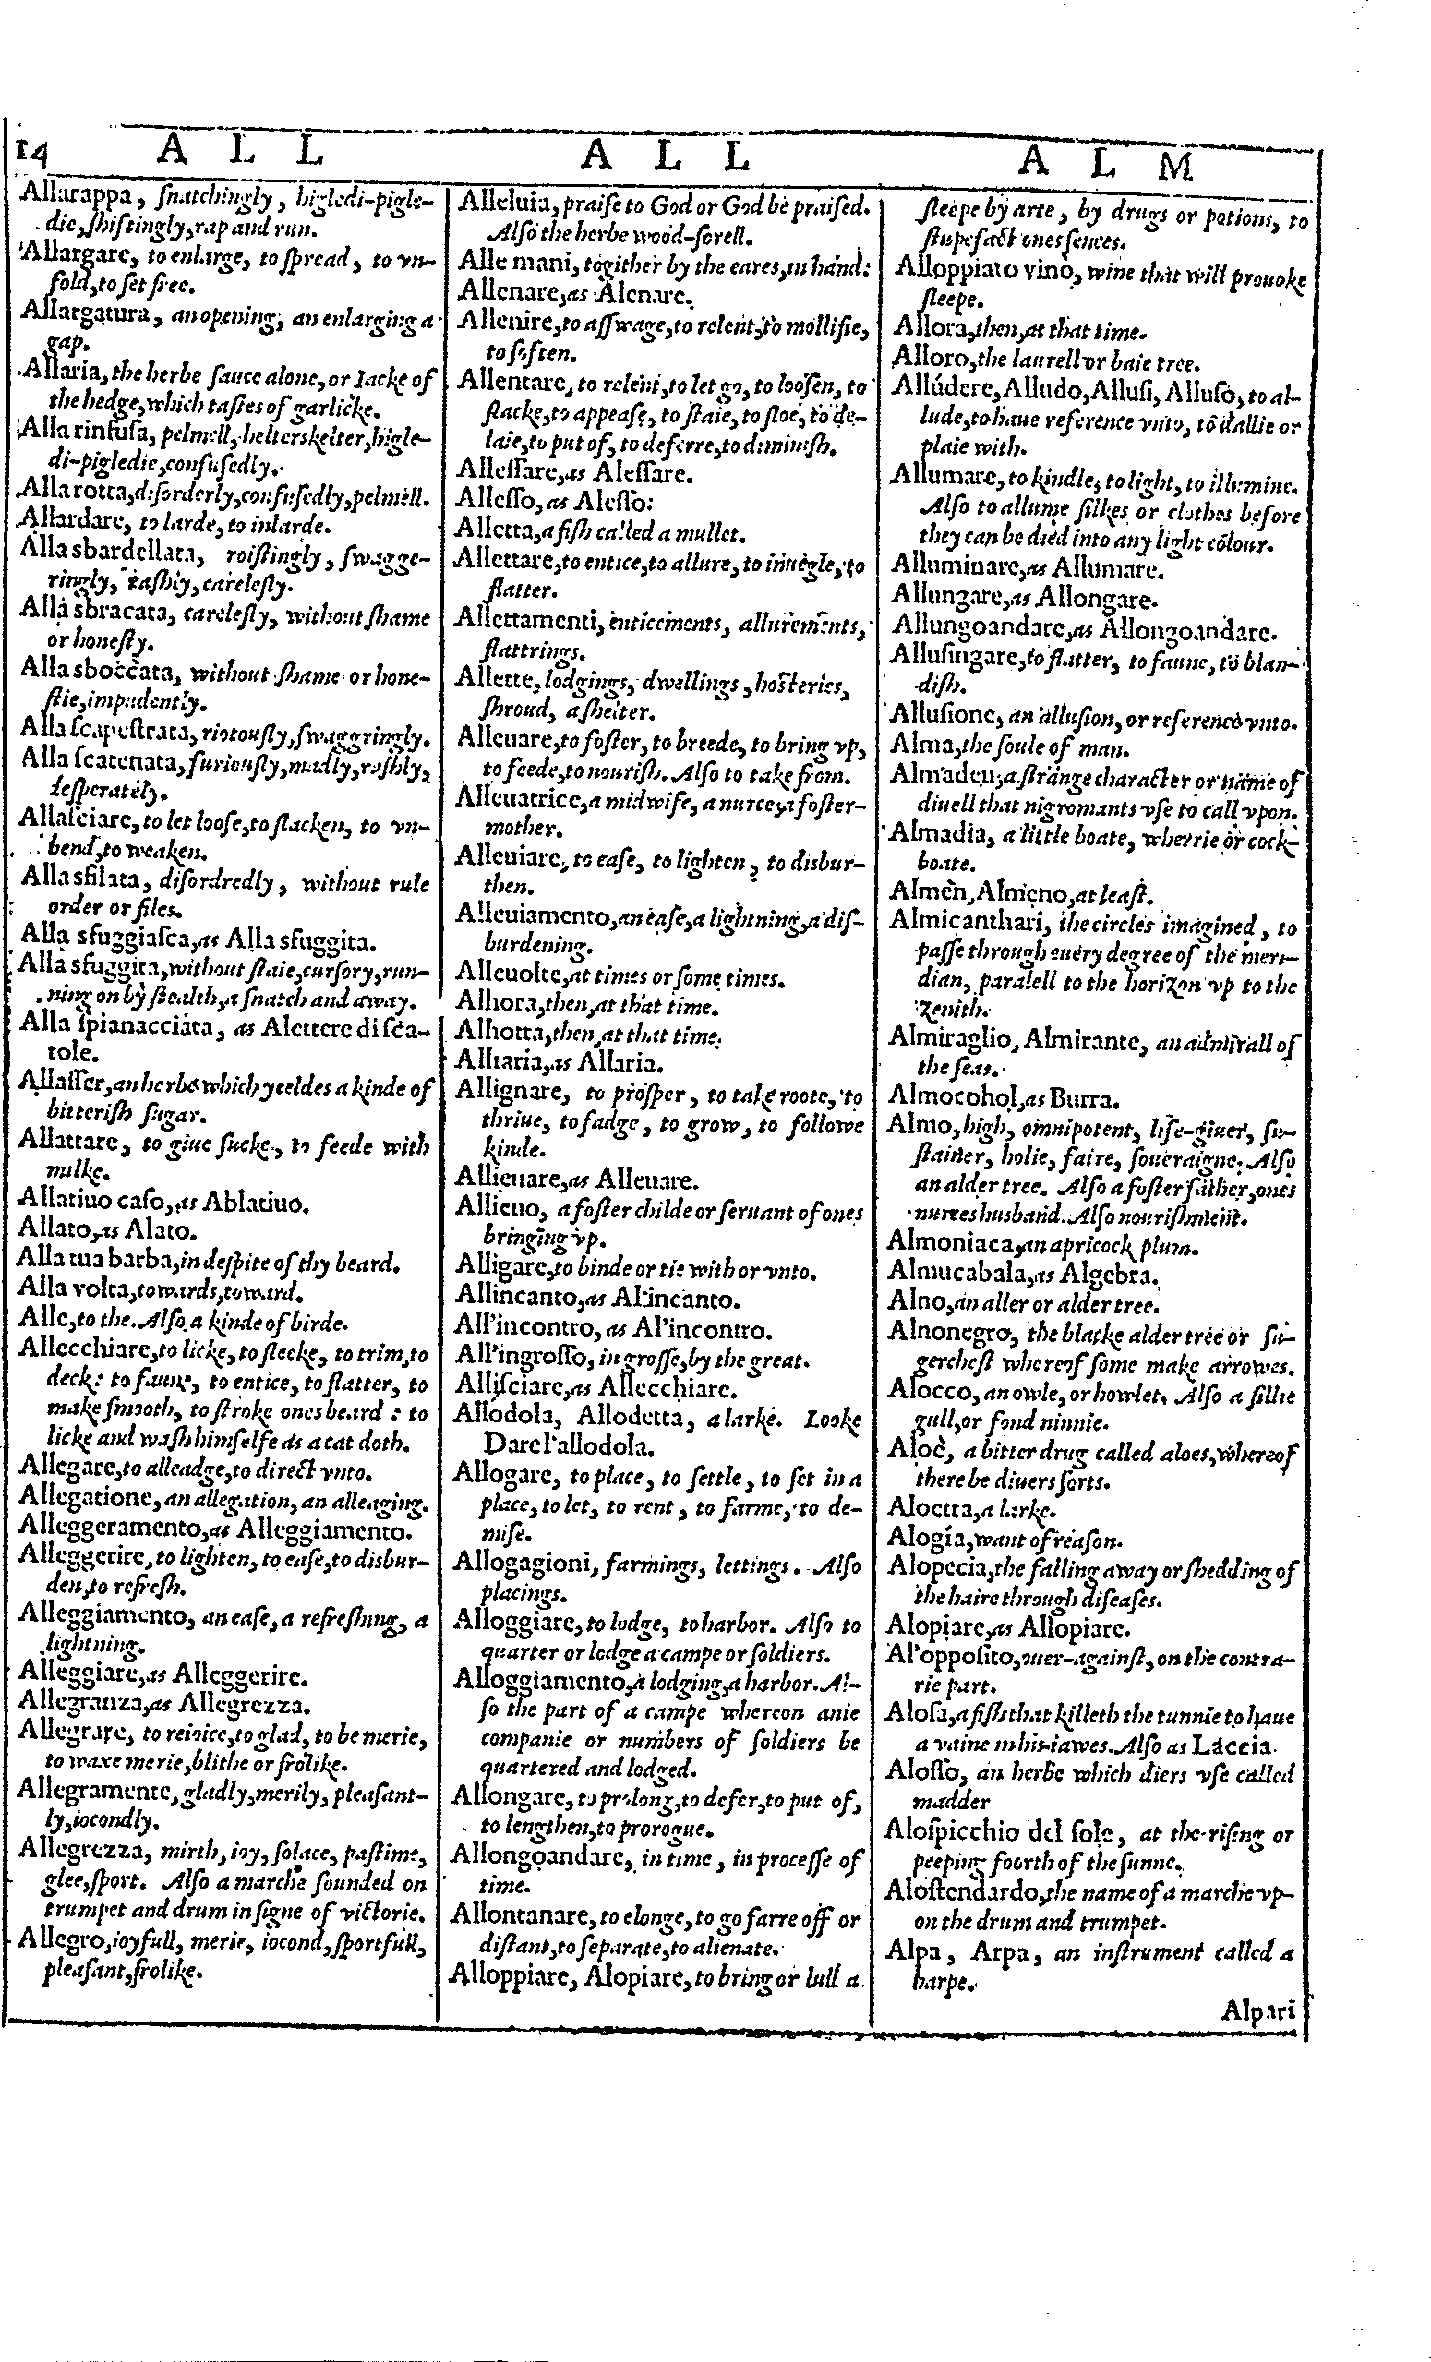 14 A L L
A L L
A L M
Allarappa, ſnatchingly, higledi-pigle-
die, ſhiftingly, rap and run.
Allargare, to enlarge, to ſpread, to vn-
fold, to ſet free.
Allargatura, an opening, an enlarging a
gap.
Allaria, the herbe ſauce alone, or Iacke of
the hedge, which taſtes of garlicke.
Alla rinfuſa, pelmell, helterskelter, higle-
di-pigledie, confuſedly.
Alla rotta, diſorderly, confuſedly, pelmell.
Allardare, to larde, to inlarde.
Alla sbardellata, roiſtingly, ſwagge-
ringly, raſhly, careleſly.
Alla sbracata, careleſly, without ſhame
or honeſty.
Alla sboccata, without ſhame or hone-
ſtie, impudently.
Alla ſcapeſtrata, riotouſly, ſwaggringly.
Alla ſcatenata, furiouſly, madly, raſhly,
deſperately.
Allaſciare, to let looſe, to ſlacken, to vn-
bend, to weaken.
Alla sfilata, diſordredly, without rule
order or files.
Alla sfuggiaſca, as Alla sfuggita.
Alla sfuggita, without ſtaie, curſory, run-
ning on by ſtealth, a ſnatch and away.
Alla ſpianacciata, as A lettere di ſca-
tole.
Allaſſer, an herbe which yeeldes a kinde of
bitteriſh ſugar.
Allattare, to giue ſucke, to feede with
milke.
Allatiuo caſo, as Ablatiuo.
Allato, as Alato.
Alla tua barba, in deſpite of thy beard.
Alla volta, towards, toward.
Alle, to the. Alſo a kinde of birde.
Allecchiare, to licke, to ſleeke, to trim, to
decke: to faune, to entice, to flatter, to
make ſmooth, to ſtroke ones beard: to
licke and waſh himſelfe as a cat doth.
Allegare, to alleadge, to direct vnto.
Allegatione, an allegation, an alleaging.
Alleggeramento, as Alleggiamento.
Alleggerire, to lighten, to eaſe, to disbur-
den, to refreſh.
Alleggiamento, an eaſe, a refreſhing, a
lightning.
Alleggiare, as Alleggerire.
Allegranza, as Allegrezza.
Allegrare, to reioice, to glad, to be merie,
to waxe merie, blithe or frolike.
Allegramente, gladly, merily, pleaſant-
ly, iocondly.
Allegrezza, mirth, ioy, ſolace, paſtime,
glee, ſport. Alſo a marche ſounded on
trumpet and drum in ſigne of victorie.
Allegro, ioyfull, merie, iocond, ſportfull,
pleaſant, frolike.
Alleluia, praiſe to God or God be praiſed.
Alſo the herbe wood-ſorell.
Alle mani, togither by the eares, in hand:
Allenare, as Alenare.
Allenire, to aſſwage, to relent, to mollifie,
to ſoften.
Allentare, to relent, to let go, to looſen, to
ſlacke, to appeaſe, to ſtaie, to ſloe, to de-
laie, to put of, to deferre, to diminiſh.
Alleſſare, as Aleſſare.
Alleſſo, as Aleſſo:
Alletta, a fiſh called a mullet.
Allettare, to entice, to allure, to inuegle, to
flatter.
Allettamenti, enticements, allurements,
flattrings.
Allette, lodgings, dwellings, hoſteries,
ſhroud, a ſhelter.
Alleuare, to foſter, to breede, to bring vp,
to feede, to nouriſh. Alſo to take from.
Alleuatrice, a midwife, a nurce, a foſter-
mother.
Alleuiare, to eaſe, to lighten, to disbur-
then.
Alleuiamento, an eaſe, a lightning, a diſ-
burdening.
Alleuolte, at times or ſome times.
Alhora, then, at that time.
Alhotta, then, at that time.
Alliaria, as Allaria.
Allignare, to proſper, to take roote, to
thriue, to fadge, to grow, to followe
kinde.
Allieuare, as Alleuare.
Allieuo, a foſter childe or ſeruant of ones
bringing vp.
Alligare, to binde or tie with or vnto.
Allincanto, as Al'incanto.
All'incontro, as Al'incontro.
All'ingroſſo, in groſſe, by the great.
Alliſciare, as Allecchiare.
Allodola, Allodetta, a larke. Looke
Dare l'allodola.
Allogare, to place, to ſettle, to ſet in a
place, to let, to rent, to farme, to de-
miſe.
Allogagioni, farmings, lettings. Alſo
placings.
Alloggiare, to lodge, to harbor. Alſo to
quarter or lodge a campe or ſoldiers.
Alloggiamento, a lodging, a harbor. Al-
ſo the part of a campe whereon anie
companie or numbers of ſoldiers be
quartered and lodged.
Allongare, to prolong, to defer, to put of,
to lengthen, to prorogue.
Allongoandare, in time, in proceſſe of
time.
Allontanare, to elonge, to go farre off or
diſtant, to ſeparate, to alienate.
Alloppiare, Alopiare, to bring or lull a
ſleepe by arte, by drugs or potions, to
ſtupefact ones ſences.
Alloppiato vino, wine that will prouoke
ſleepe.
Allora, then, at that time.
Alloro, the laurell or baie tree.
Allúdere, Alludo, Alluſi, Alluſo, to al-
lude, to haue reference vnto, to dallie or
plaie with.
Allumare, to kindle, to light, to illumine.
Alſo to allume ſilkes or clothes before
they can be died into any light colour.
Alluminare, as Allumare.
Allungare, as Allongare.
Allungoandare, as Allongoandare.
Alluſingare, to flatter, to faune, to blan-
diſh.
Alluſione, an alluſion, or reference vnto.
Alma, the ſoule of man.
Almadeu, a ſtrange character or name of
diuell that nigromants vſe to call vpon.
Almadia, a little boate, wherrie or cock-
boate.
Almen, Almeno, at leaſt.
Almicanthari, the circles imagined, to
paſſe through euery degree of the meri-
dian, paralell to the horizon vp to the
zenith.
Almiraglio, Almirante, an admirall of
the ſeas.
Almocohol, as Burra.
Almo, high, omnipotent, life-giuer, ſu-
ſtainer, holie, faire, ſoueraigne. Alſo
an alder tree. Alſo a foſter father, ones
nurces husband. Alſo nouriſhment.
Almoniaca, an apricock plum.
Almucabala, as Algebra.
Alno, an aller or alder tree.
Alnonegro, the blacke alder tree or ſu-
gercheſt whereof ſome make arrowes.
Alocco, an owle, or howlet. Alſo a ſillie
gull, or fond ninnie.
Aloè, a bitter drug called aloes, whereof
there be diuers ſorts.
Aloetta, a larke.
Alogía, want of reaſon.
Alopecia, the falling away or ſhedding of
the haire through diſeaſes.
Alopiare, as Allopiare.
Al'oppoſito, ouer-againſt, on the contra-
rie part.
Aloſa, a fiſh that killeth the tunnie to haue
a vaine in his iawes. Alſo as Laccia.
Aloſſo, an herbe which diers vſe called
madder
Aloſpicchio del ſole, at the riſing or
peeping foorth of the ſunne.
Aloſtendardo, the name of a marche vp-
on the drum and trumpet.
Alpa, Arpa, an inſtrument called a
harpe.
Alpari